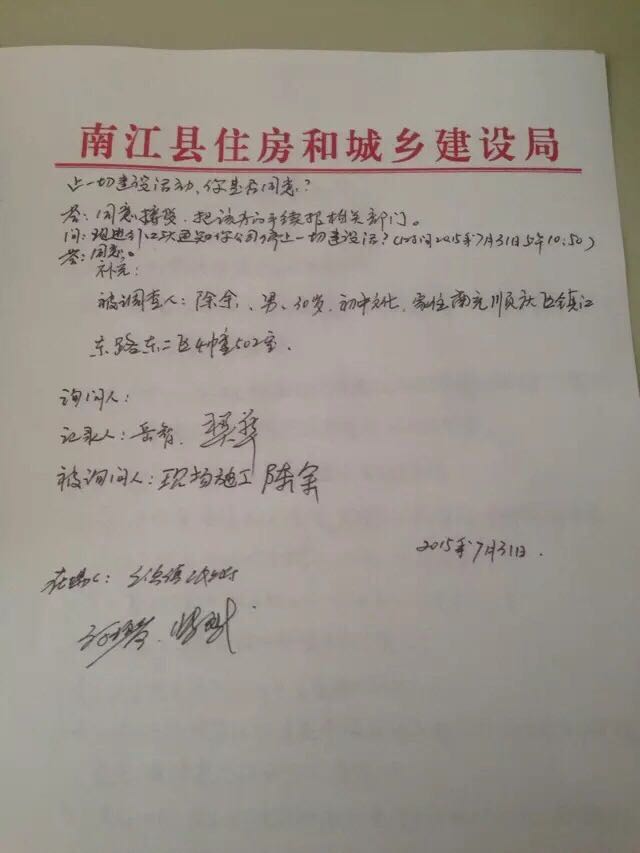 南江县住房和城乡建设局
止一切建设活动,你是否同意?
答:同意接受,把该方的手续报相关部门。
问:现进行口头通知你公司停止一切建设活?(时间2015年7月31日上午10:50)
答:同意。
补充:
被调查人:陈余、男、30岁,初中文化,家住南充顺庆飞镇江
东路东二区4幢502室.
询问人:
记录人:岳智.
被询问人:现场施工 陈余
2015年7月31日.
在场人: